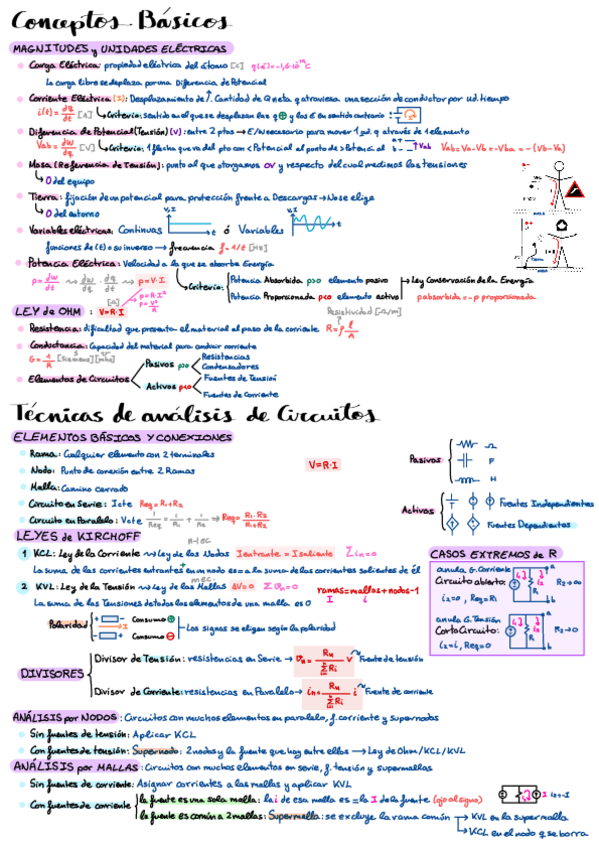 Conceptos Básicos
MAGNITUDES y UNIDADES ELÉCTRICAS
Carga Eléctrica: propiedad eléctrica del átomo [C] q(e⁻)=-1,6·10⁻¹⁹C
La carga libre se desplaza por una Diferencia de Potencial
Corriente Eléctrica (I): Desplazamiento de /. Cantidad de Q neta q atraviesa una sección de conductor por ud. tiempo
i(t) = dq/dt [A] ↳ Criterio: sentido en el que se desplazan las q ⊕ y los E en sentido contrario
Diferencia de Potencial (Tensión) (V): entre 2 ptos → E/W necesario para mover 1 ud. q através de 1 elemento
Vab = dw/dq [V] ↳ Criterio: 1 flecha que va del pto con < Potencial al punto de > Potencial Vab Vab = Va-Vb = -Vba = -(Vb-Va)
Masa (Referencia de Tensión): punto al que otorgamos 0V y respecto del cual medimos las tensiones
↳ 0 del equipo
Tierra: fijación de un potencial para protección frente a Descargas → No se elige
↳ 0 del entorno
Variables eléctricas: Continuas V,I t ó Variables V,I t
funciones de (t) o su inverso → frecuencia f = 1/t [Hz]
Potencia Eléctrica: Velocidad a la que se absorbe Energía
p = dw/dt → dw/dq · dq/dt → p = V·I
p = R·I²
p = V²/R
Criterio: Potencia Absorbida p>0 elemento pasivo
Potencia Proporcionada p<0 elemento activo
↳ Ley Conservación de la Energía
pabsorbida = -p proporcionada
LEY de OHM : V=R·I [Ω]
Resistividad [Ω/m]
Resistencia: dificultad que presenta el material al paso de la corriente R = ρ l/A
Conductancia: Capacidad del material para conducir corriente
G = 1/R [Siemens] [mho]
Elementos de Circuitos
Pasivos p>0 Resistencias
Condensadores
Activos p<0 Fuentes de Tensión
Fuentes de Corriente
Técnicas de análisis de Circuitos
ELEMENTOS BÁSICOS Y CONEXIONES
Rama: Cualquier elemento con 2 terminales
Nodo: Punto de conexión entre 2 Ramas
Malla: Camino cerrado
V=R·I
Pasivos Ω
F
H
Activos Fuentes Independientes
Fuentes Dependientes
Circuito en Serie: I cte Req = R1+R2
Circuito en Paralelo: V cte 1/Req = 1/R1 + 1/R2 → Req = R1·R2/R1+R2
LEYES de KIRCHOFF
1 KCL: Ley de la Corriente → Ley de los Nodos I entrante = I saliente Σ in=0
La suma de las corrientes entrantes en un nodo es = a la suma de las corrientes salientes de él
2 KVL: Ley de la Tensión → Ley de las Mallas ΔV=0 Σ vn=0
ramas = mallas + nodos - 1
La suma de las Tensiones de todos los elementos de una malla es 0
Polaridad + - Consumo ⊕
- + Consumo ⊖
Los signos se eligen según la polaridad
CASOS EXTREMOS de R
anula G. Corriente
Circuito abierto: R2→∞
i2=0, Req=R1
anula G. Tensión
Corto Circuito: R2→0
i2=i, Req=0
DIVISORES
Divisor de Tensión: resistencias en Serie → vn = Rn/ΣRi v Fuente de tensión
Divisor de Corriente: resistencias en Paralelo → in = Rn/ΣRi i Fuente de corriente
ANÁLISIS por NODOS: Circuitos con muchos elementos en paralelo, f. corriente y supernodos
Sin fuentes de tensión: Aplicar KCL
Con fuentes de tensión: Supernodo: 2 nodos y la fuente que hay entre ellos → Ley de Ohm/KCL/KVL
ANÁLISIS por MALLAS: Circuitos con muchos elementos en serie, f. tensión y supermallas
Sin fuentes de corriente: Asignar corrientes a las mallas y aplicar KVL
Con fuentes de corriente
la fuente es una sola malla: la i de esa malla es = la I de la fuente (ojo al signo) I is=-I
la fuente es común a 2 mallas: Supermalla: se excluye la rama común → KVL en la supermalla
↳ KCL en el nodo q se borra